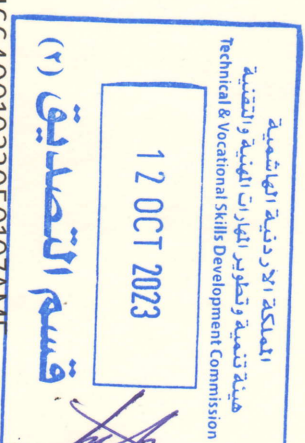 المملكة الاردنية الهاشمية
هيئة تنمية وتطوير المهارات المهنية والتقنية
Technical & Vocational Skills Development Commission
12 OCT 2023
قسم التصديق (٢)